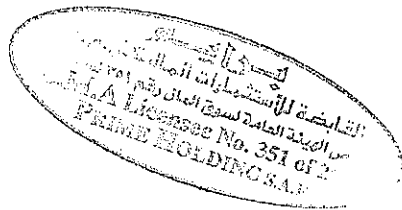 برايم
القابضة للاستثمارات المالية
من الهيئة العامة لسوق المال رقم ٣٥١
License No. 351 of
PRIME HOLDING S.A.